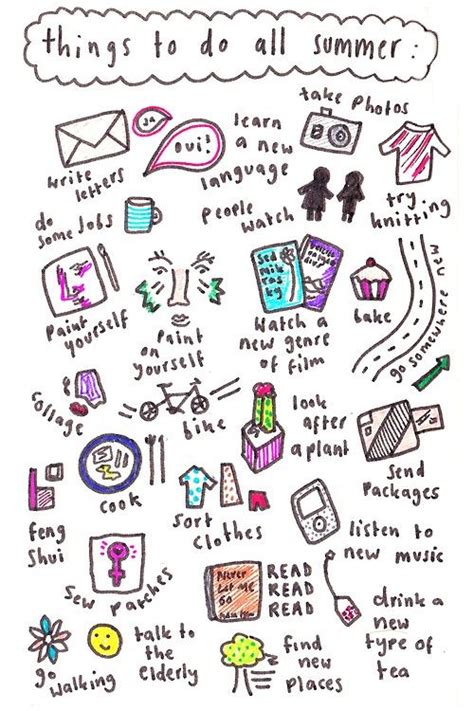 things to do all summer:
take photos
ja
oui!
learn
a new
language
write
letters
people
watch
try
knitting
do
some jobs
paint
yourself
Paint
on
yourself
watch a
new genre
of film
bake
go somewhere new
collage
bike
look
after
a plant
send
packages
cook
feng
shui
sort
clothes
listen to
new music
sew patches
Never
Let Me
Go
READ
READ
READ
drink a
new
type of
tea
go
walking
talk to
the
elderly
find
new
places